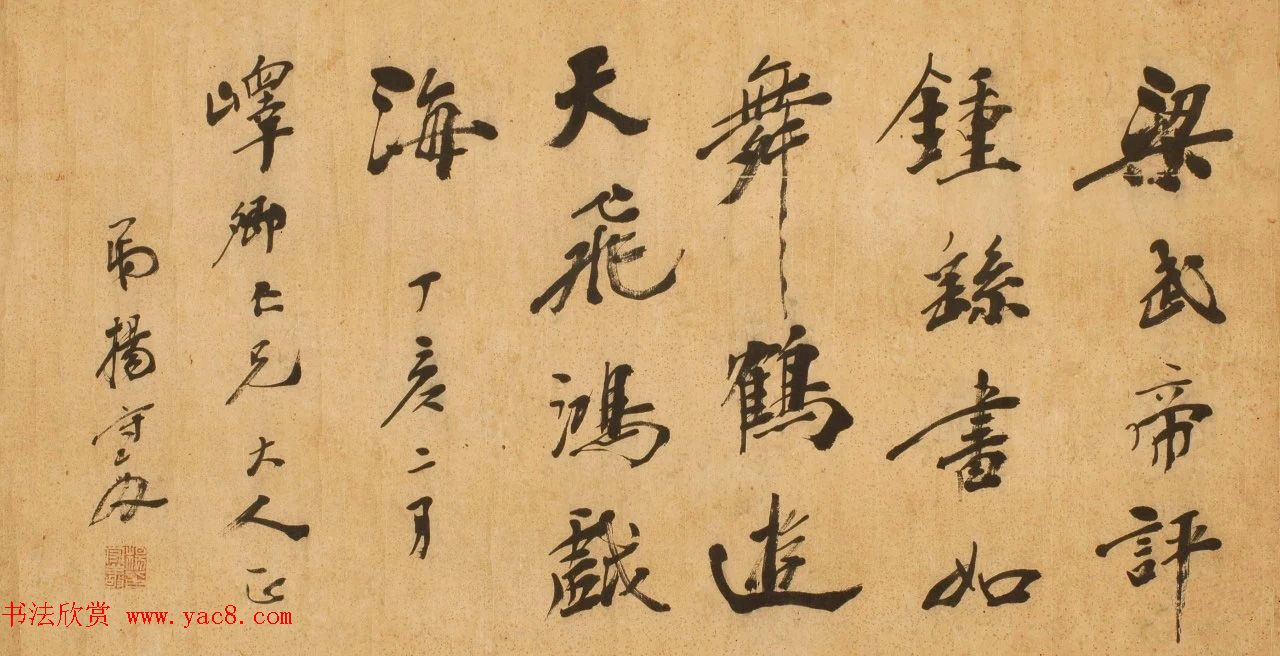 梁武帝評
鍾繇書如
舞鶴遊
天飛鴻戲
海 丁亥二月
嶧卿仁兄大人正
弟楊守敬
书法欣赏 www.yac8.com